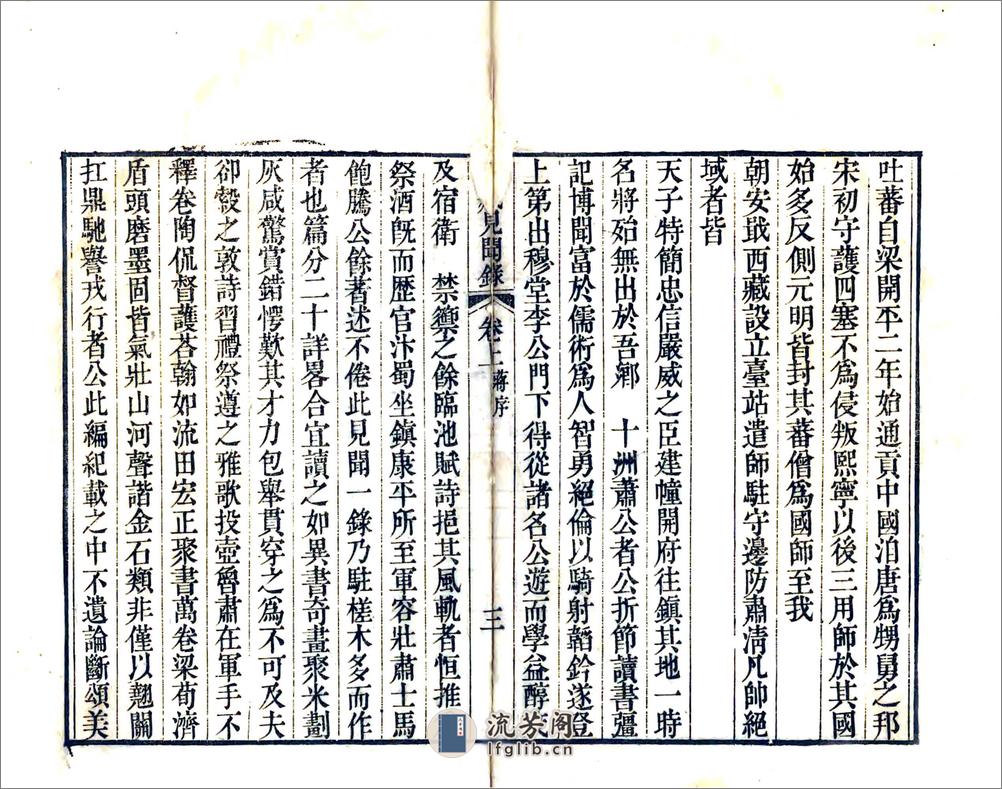 吐蕃自梁開平二年始通貢中國洎唐為甥舅之邦
宋初守護四塞不為侵叛熙寧以後三用師於其國
始多反側元明皆封其蕃僧為國師至我
朝安戢西藏設立臺站遣師駐守邊防肅清凡帥絕
域者皆
天子特簡忠信嚴威之臣建幢開府往鎮其地一時
名將始無出於吾鄉 十洲蕭公者公折節讀書彊
記博聞富於儒術為人智勇絕倫以騎射韜鈐遂登
上第出穆堂李公門下得從諸名公遊而學益醇
見聞錄 卷上 蔣序 三
及宿衛 禁籞之餘臨池賦詩挹其風軌者恒推
祭酒旣而歷官汴蜀坐鎮康平所至軍容壯肅士馬
飽騰公餘著述不倦此見聞一錄乃駐槎木多而作
者也篇分二十詳畧合宜讀之如異書奇畫聚米劃
灰咸驚賞錯愕歎其才力包舉貫穿之為不可及夫
卻縠之敦詩習禮祭遵之雅歌投壺魯肅在軍手不
釋卷陶侃督護荅翰如流田宏正聚書萬卷梁荀濟
盾頭磨墨固皆氣壯山河聲諧金石類非僅以翹關
扛鼎馳譽戎行者公此編紀載之中不遺論斷頌美
流芳阁
lfglib.cn